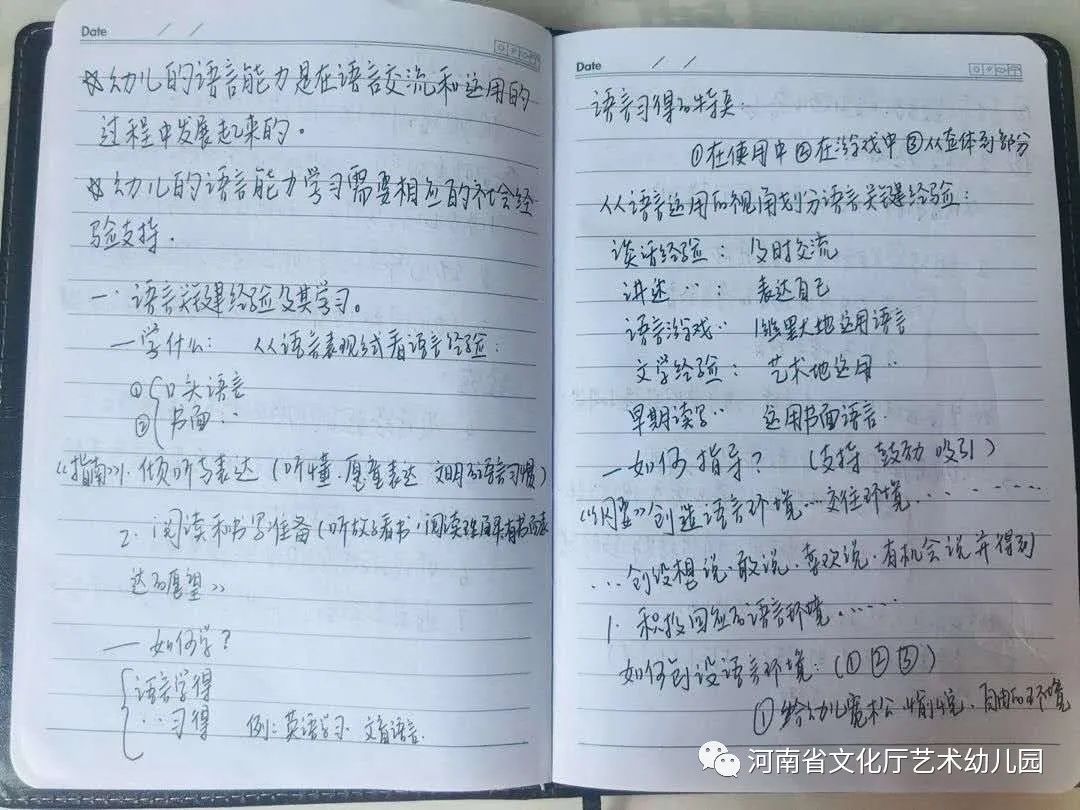 Date / /
☆幼儿的语言能力是在语言交流和运用的
过程中发展起来的。
☆幼儿的语言能力学习需要相应的社会经
验支持.
一. 语言关键经验及其学习。
—学什么: 从语言表现形式看语言经验:
① 口头语言
② 书面 ..
《指南》1. 倾听与表达 (听懂. 愿意表达 文明的语言习惯)
2. 阅读和书写准备 (听故事看书. 阅读理解.有书面表
达的愿望》
— 如何学?
语言学得
.. 习得 例: 英语学习. 文言语言.
Date / /
语言习得的特点:
①在使用中 ②在游戏中 ③从整体到部分
从语言运用的视角划分语言关键经验:
谈话经验: 及时交流
讲述 ..: 表达自己
语言游戏.. 地运用语言
文学经验: 艺术地运用 ..
早期读写.. 运用书面语言.
—如何指导? (支持 鼓励 吸引)
《纲要》创造语言环境…交往环境......
... 创设想说.敢说.喜欢说.有机会说并得到
1. 积极回应的语言环境......
如何创设语言环境: (①②③)
① 给幼儿宽松.愉悦.自由的环境
河南省文化厅艺术幼儿园